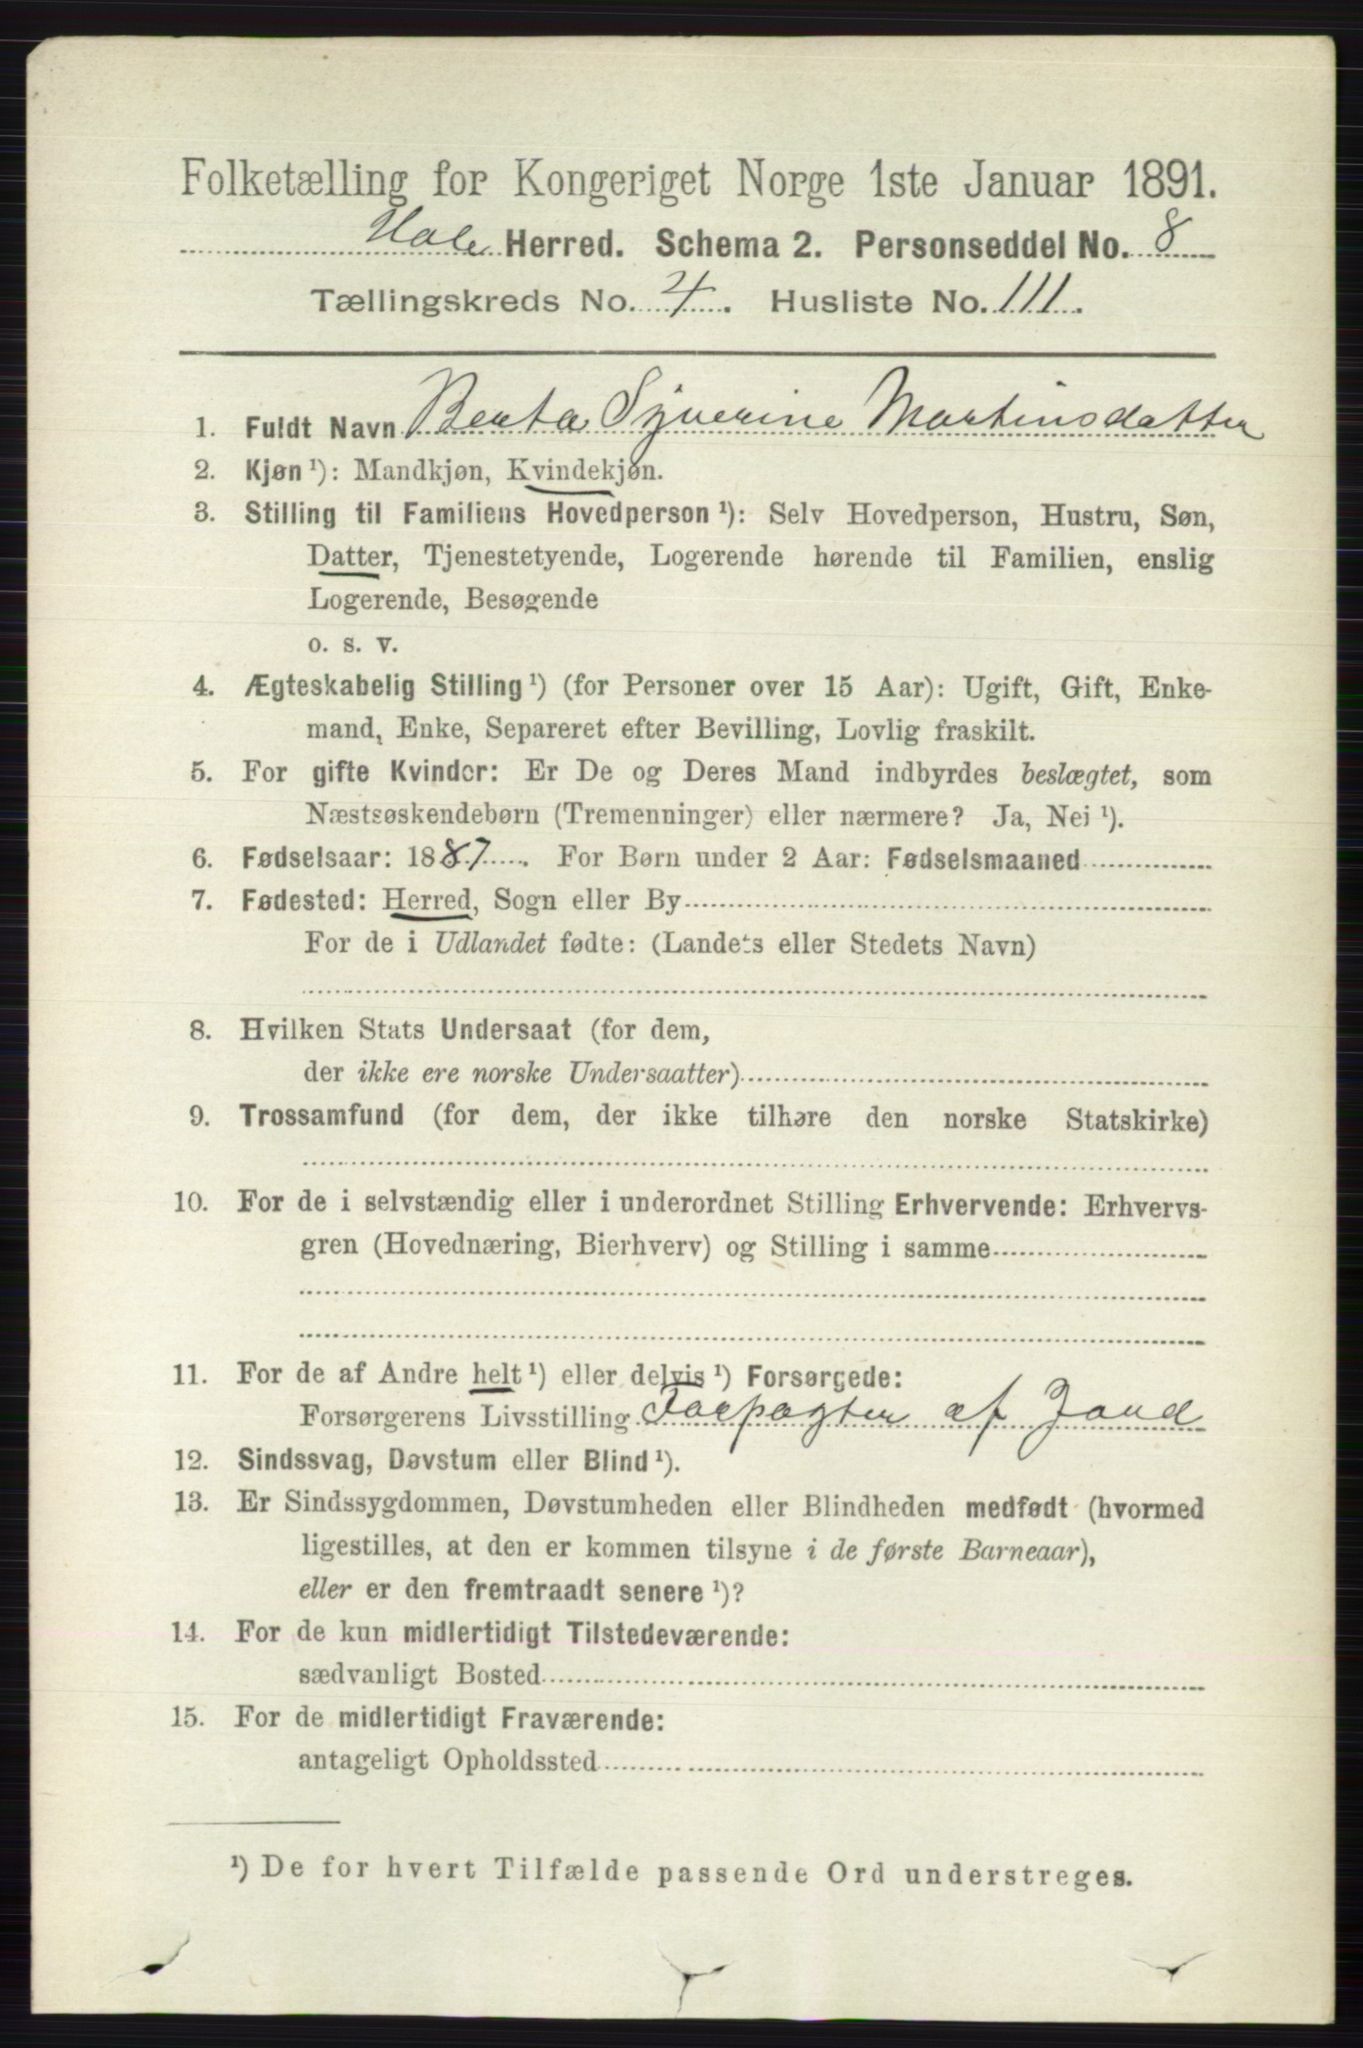 Folketælling for Kongeriget Norge 1ste Januar 1891.
Hole Herred. Schema 2. Personseddel No. 8
Tællingskreds No. 4. Husliste No. 111.
1. Fuldt Navn Berta Syverine Martinsdatter
2. Kjøn ¹): Mandkjøn, Kvindekjøn.
3. Stilling til Familiens Hovedperson ¹): Selv Hovedperson, Hustru, Søn,
Datter, Tjenestetyende, Logerende hørende til Familien, enslig
Logerende, Besøgende
o. s. v.
4. Ægteskabelig Stilling ¹) (for Personer over 15 Aar): Ugift, Gift, Enke-
mand, Enke, Separeret efter Bevilling, Lovlig fraskilt.
5. For gifte Kvinder: Er De og Deres Mand indbyrdes beslægtet, som
Næstsøskendebørn (Tremenninger) eller nærmere? Ja, Nei ¹).
6. Fødselsaar: 1887. For Børn under 2 Aar: Fødselsmaaned
7. Fødested: Herred, Sogn eller By
For de i Udlandet fødte: (Landets eller Stedets Navn)
8. Hvilken Stats Undersaat (for dem,
der ikke ere norske Undersaatter)
9. Trossamfund (for dem, der ikke tilhøre den norske Statskirke)
10. For de i selvstændig eller i underordnet Stilling Erhvervende: Erhvervs-
gren (Hovednæring, Bierhverv) og Stilling i samme
11. For de af Andre helt ¹) eller delvis ¹) Forsørgede:
Forsørgerens Livsstilling Forpagter af Jord
12. Sindssvag, Døvstum eller Blind ¹).
13. Er Sindssygdommen, Døvstumheden eller Blindheden medfødt (hvormed
ligestilles, at den er kommen tilsyne i de første Barneaar),
eller er den fremtraadt senere ¹)?
14. For de kun midlertidigt Tilstedeværende:
sædvanligt Bosted
15. For de midlertidigt Fraværende:
antageligt Opholdssted
¹) De for hvert Tilfælde passende Ord understreges.